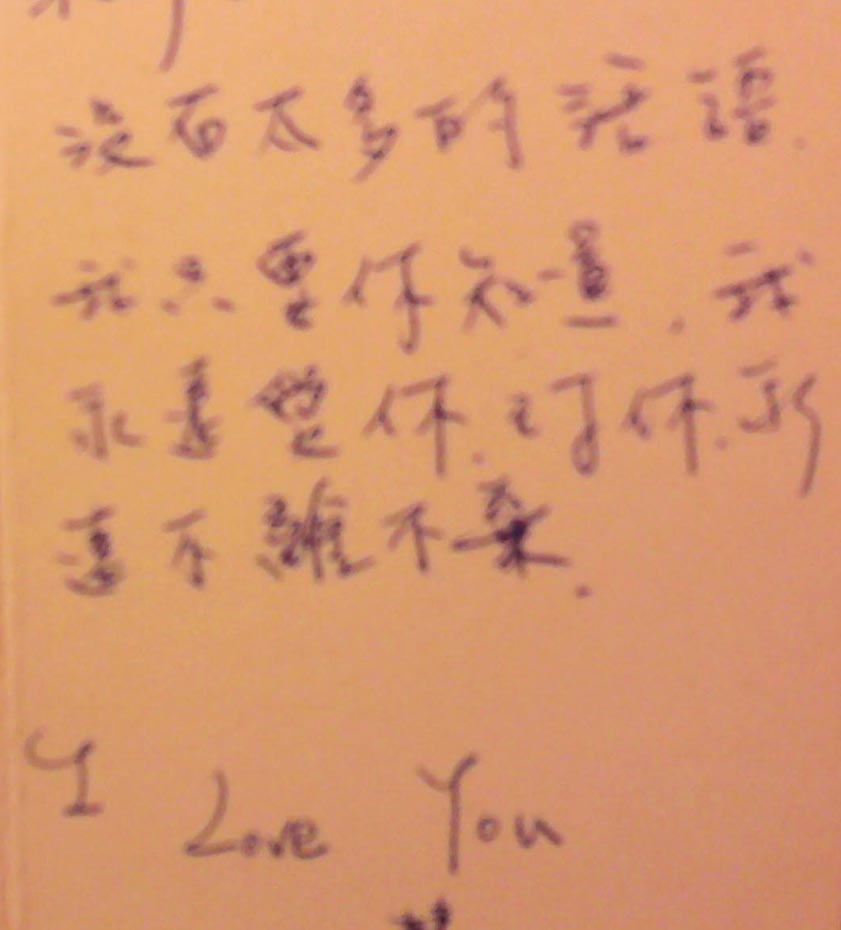 沒有太多的話語.
我只要你知道.我
永遠愛你.對你永
遠不離不棄.
I Love You